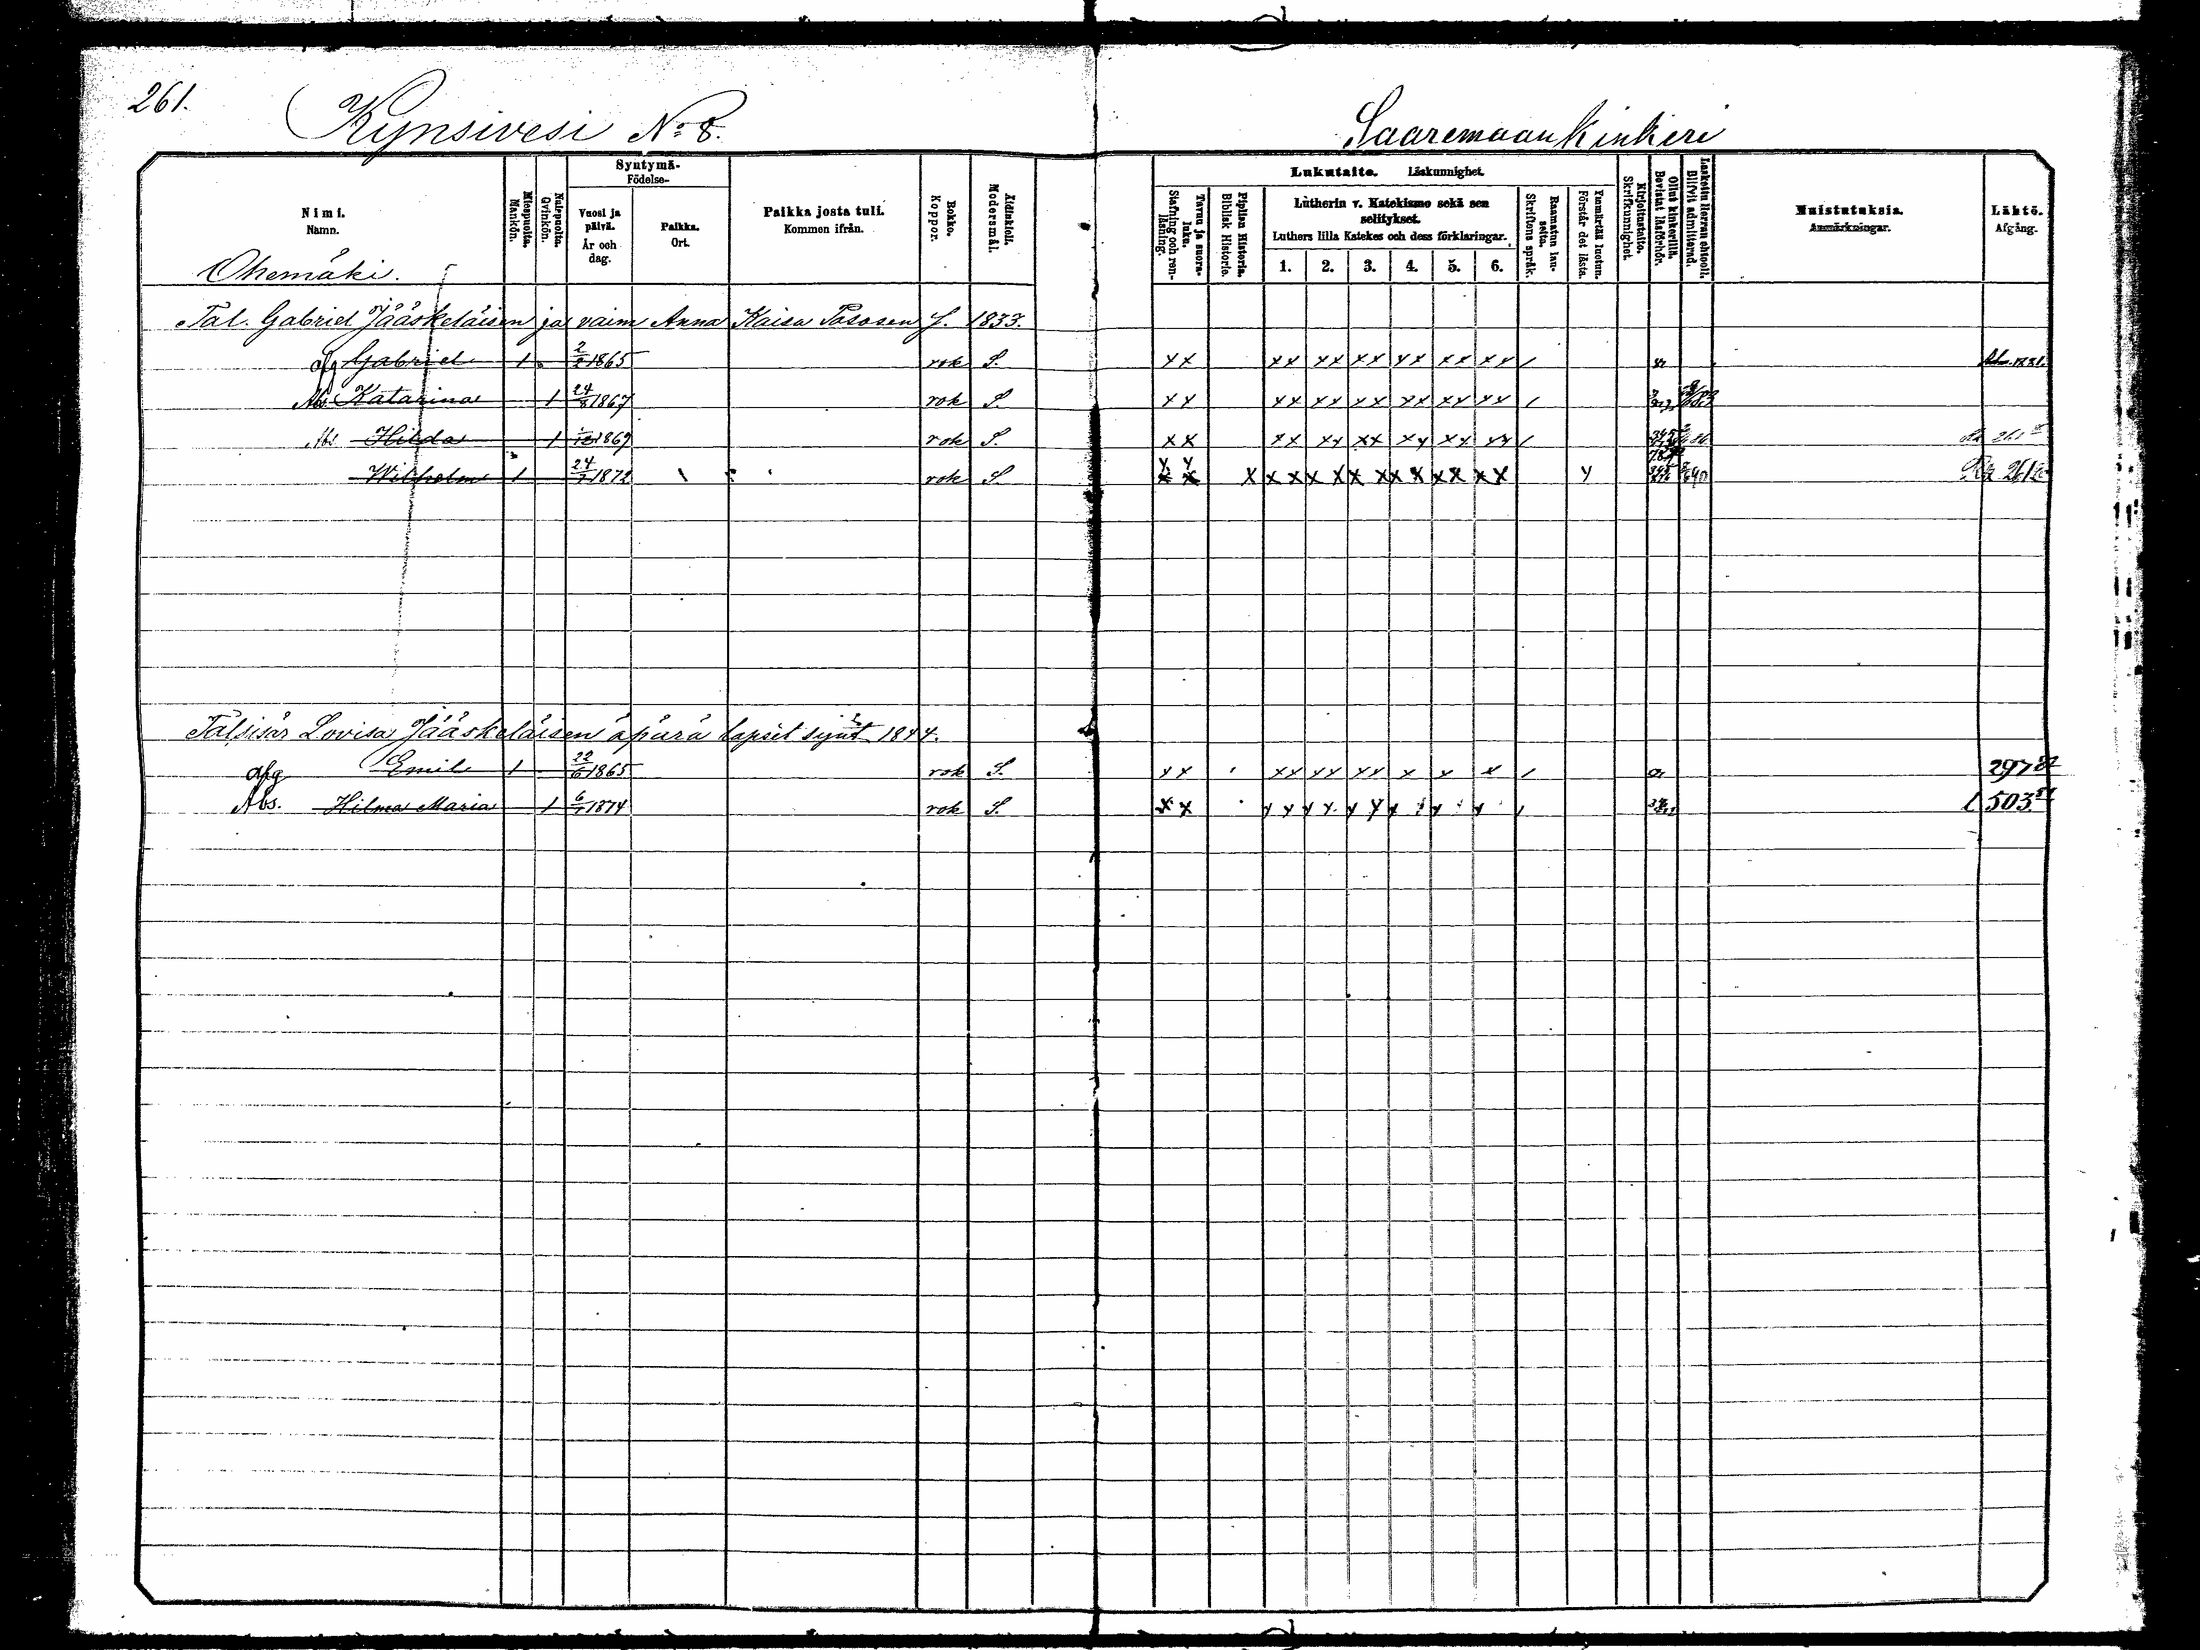 261.
Kynsivesi No 8.
Saaremaan Kinkeri
Nimi.
Namn.
Miespuolia.
Mankön.
Naispuolia.
Qvinkön.
Syntymä-
Födelse-
Vuosi ja päivä.
År och dag.
Paikka.
Ort.
Paikka josta tuli.
Kommen ifrån.
Rokko.
Koppor.
Äidinkieli.
Modersmål.
Lukutaito. Läskunnighet.
Tavuu ja suora-luku.
Stafning och ren-läsning.
Piplian Historia.
Biblisk Historie.
Lutherin v. Katekismo sekä sen selitykset.
Luthers lilla Katekes och dess förklaringar.
1. 2. 3. 4. 5. 6.
Raamatun lau-seita.
Skriftens språk.
Ymmärtää luetun.
Förstår det lästa.
Kirjoitustaito.
Skrifkunnighet.
Ollut kinkerillä.
Bevistat läsförhör.
Laskettu Herran ehtooll.
Blifvit admitterad.
Muistutuksia.
Anmärkningar.
Lähtö.
Afgång.
Ohemäki.
Tal. Gabriel Jääskeläisen ja vaim Anna Kaisa Pasosen s. 1833.
afg Gabriel 1 2/2 1865 rok S. xx xx xx xx xx xx xx /
Abs. Katarina 1 24/8 1867 rok S. xx xx xx xx xx xx xx /
Abs Hilda 1 1869 rok S. xx xx xx xx xx xx xx / 261
Wilhelm 1 24/7 1872 rok S x x x x x x x x x x x x x x x y 261
Talsisär Lovisa Jääskeläisen äpärä lapset synt 1844.
afg Emil 1 22/6 1865 rok S. xx xx xx xx x x x / 297
Abs. Hilma Maria 1 6/1 1874 rok S. x x 503